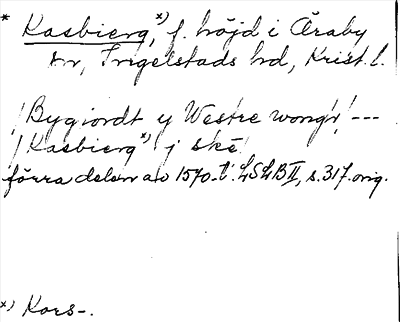 * Kasbierg, x) f. höjd i Åraby
sn, Ingelstads hd, Krist. l.
/Bygiordt y Westre wong/, ---
/Kasbierg x) j skē
förra delen av 1570-t. LSLB II, s. 317. orig.
x) Kors-.